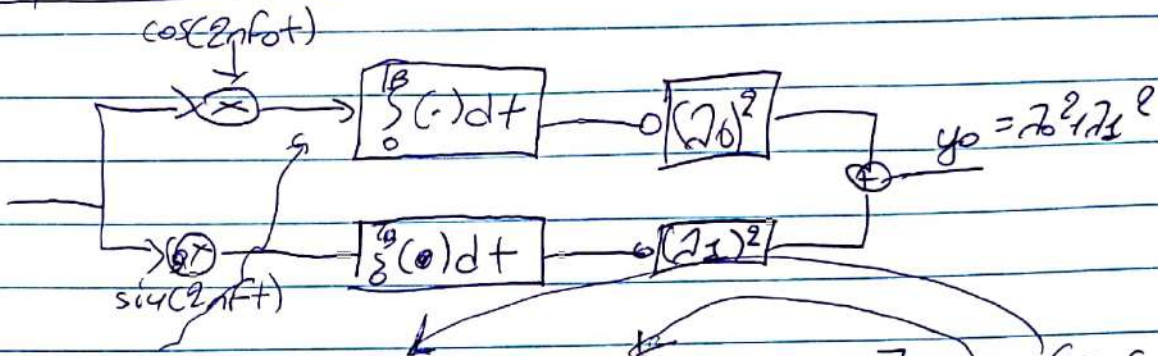 cos(2πf₀t)
× ∫₀ᵀᴮ(·)dt (λ₀)² y₀ = λ₀² + λ₁²
+
× ∫₀ᵀᴮ(·)dt (λ₁)²
sin(2πft)